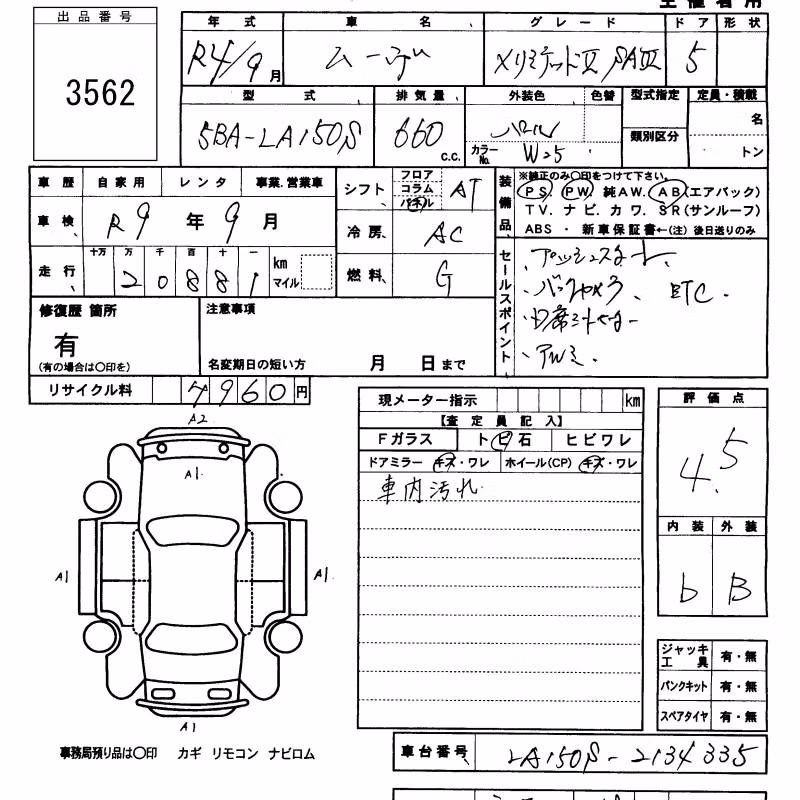 主催者用
出品番号
3562
年式 車名 グレード ドア 形状
R4/9月 ムーヴ XリミテッドⅡ SAⅢ 5
型式 排気量 外装色 色替 型式指定 定員・積載
5BA-LA150S 660 C.C. パール 名
カラーNo. W25 類別区分 トン
車歴 自家用 レンタ 事業.営業車
車検 R9年9月
シフト フロア コラム パネル AT
冷房 AC
燃料 G
装備品 ※純正のみ○印をつけて下さい。
PS. PW. 純AW. AB(エアバック)
TV. ナビ. カワ. SR(サンルーフ)
ABS ・ 新車保証書←(注) 後日送りのみ
走行 十万 万 千 百 十 一
20881 km マイル
セールスポイント
プッシュスタート
バックカメラ、ETC.
アルミ.
修復歴 箇所
有
(有の場合は○印を)
注意事項
名変期日の短い方 月 日まで
リサイクル料 7960円
現メーター指示 km
【査定員記入】
Fガラス トビ石 ヒビワレ
ドアミラー キズ・ワレ ホイール(CP) キズ・ワレ
車内汚れ
評価点
4.5
内装 外装
b B
A2
A1
A1
A1
A1
ジャッキ工具 有・無
パンクキット 有・無
スペアタイヤ 有・無
事務局預り品は○印 カギ リモコン ナビロム
車台番号 LA150S-2134335